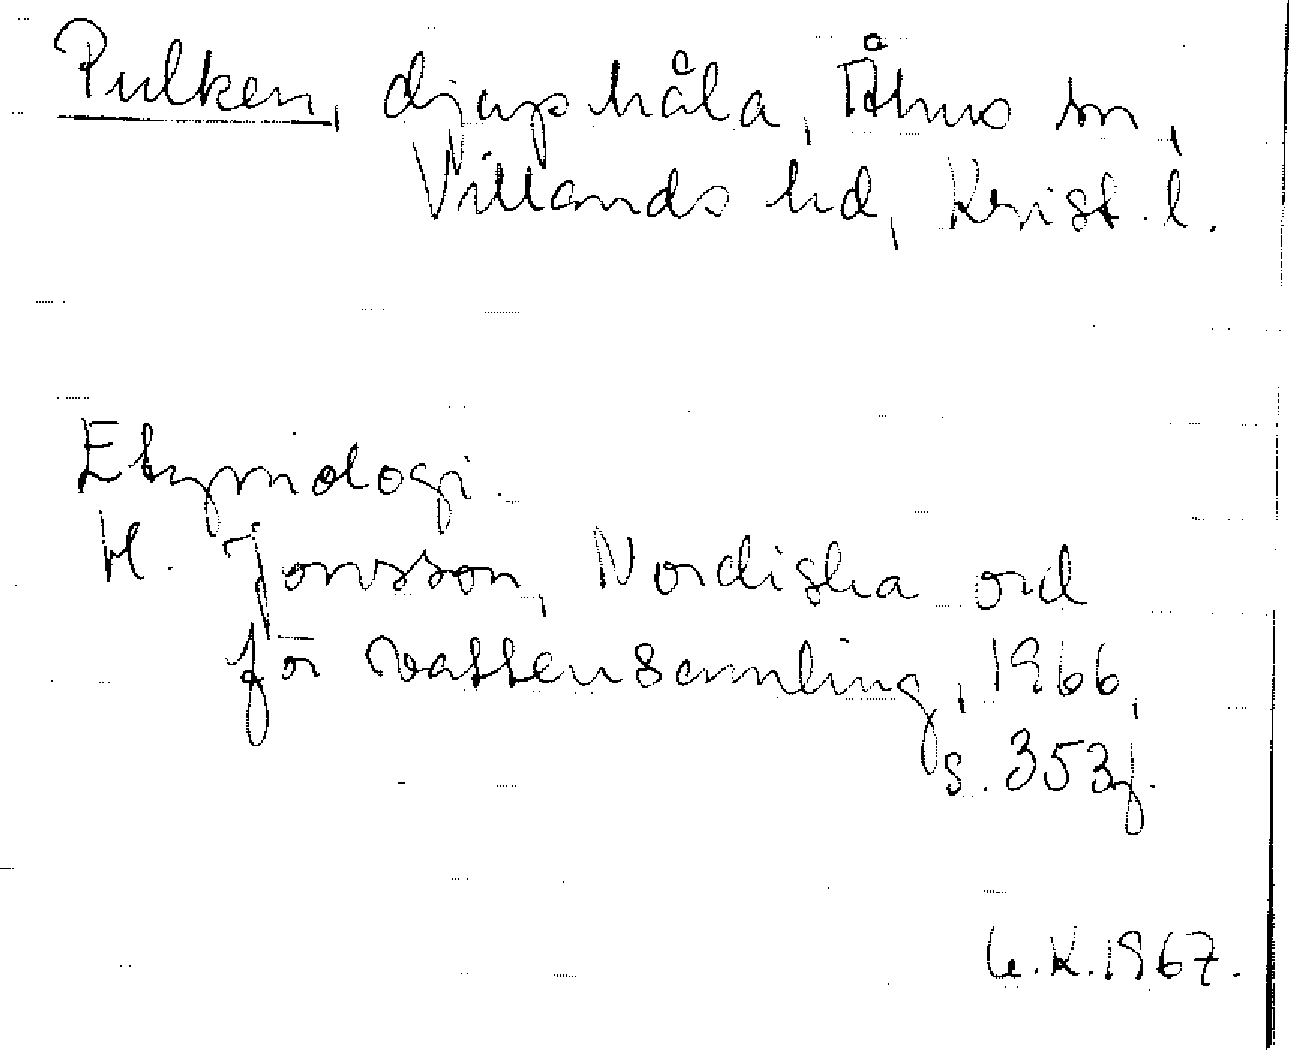 Pulken, djuphåla, Åhus sn,
Villands hd, Krist. l.
Etymologi.
H. Jonsson, Nordiska ord
för vattensamling, 1966,
s. 353f.
G.K. 1967.